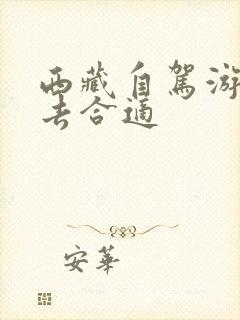 西藏自駕游
去合適
安華